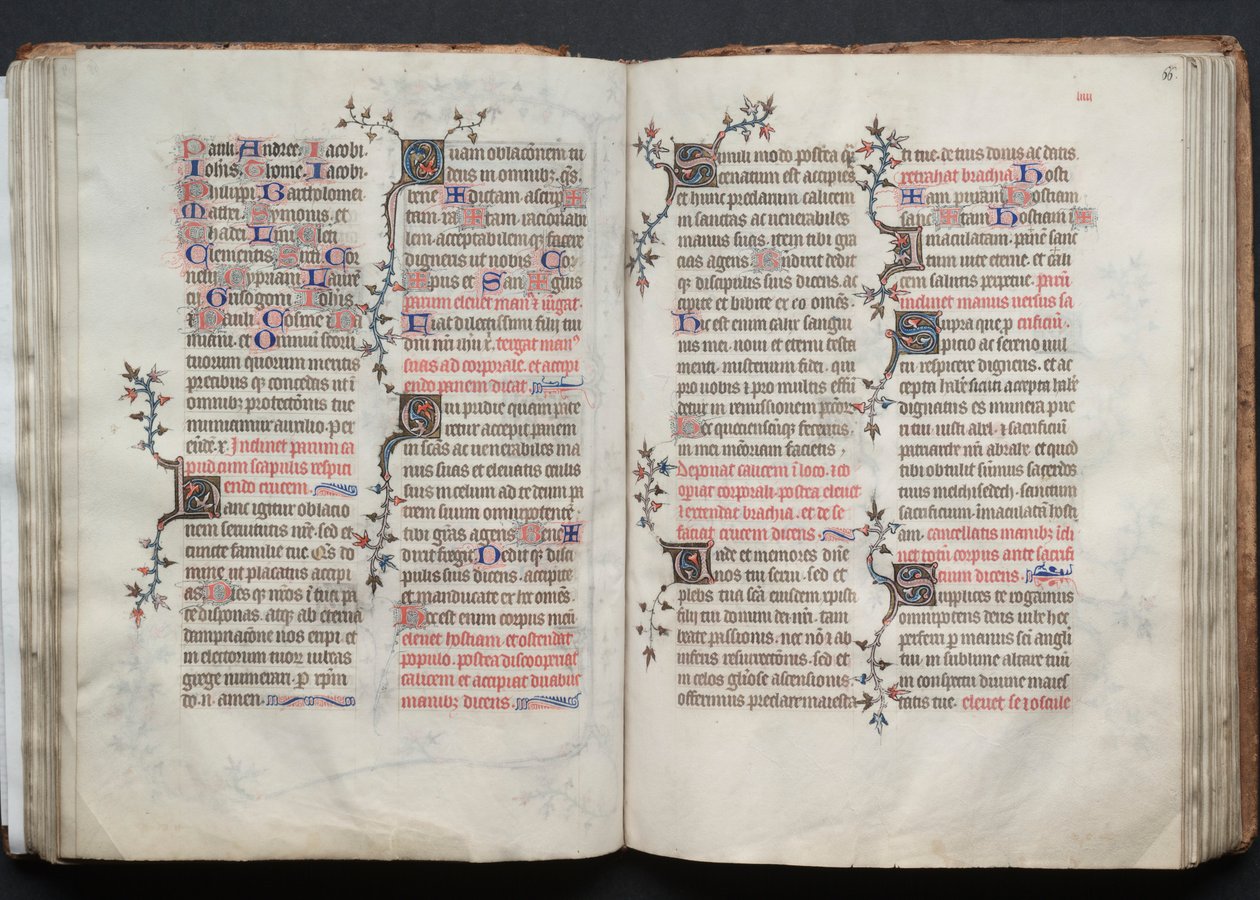 Pauli. Andree. Iacobi.
Iohis. Thome. Iacobi.
Philippi. Bartholomei.
Mathei. Symonis. et
Thadei. Lini. Cleti.
Clementis. Sixti. Cor
nelii. Cypriani. Laurē
cij. Grisogoni. Iohis.
⁊ Pauli. Cosme ⁊ Da
miani. et Omnium scōrū
tuorum quorum meritis
precibus qꝫ concedas ut ī
omnibꝫ protectōnis tue
muniamur auxilio. Per
eūdē. x̄. Inclinet parum ca
pud cum scapulis respici
endo crucem.
Hanc igitur oblacio
nem seruitutis nr̄e. sed et
cuncte familie tue. Qs̄ do
mine ut placatus accipi
as. Dies qꝫ nr̄os ī tua pa
ce disponas. atqꝫ ab eterna
dampnacōne nos eripi. et
in electorum tuoꝝ iubeas
grege numerari. ꝑ xp̄m
do. n. amen.
Quam oblacōnem tu
deus in omnibꝫ. qs̄.
bene ✠ dictam. ascrip ✠
tam. ra ✠ tam. racionabi
lem. acceptabilem qꝫ facere
digneris ut nobis Cor
✠ pus et San ✠ guis
parum eleuet manꝰ ⁊ iūgat.
Fiat dilectissimi filij tui
dn̄i nr̄i ihu x̄. tergat manꝰ
suas ad corporale. et accipi
endo panem dicat.
Qui pridie quam pate
retur accepit panem
in sc̄as ac uenerabiles ma
nus suas et eleuatis oculis
suis in celum ad te deum pa
trem suum omnipotentē.
tibi grās agens. Bene ✠
dixit fregit. Dedit qꝫ disci
pulis suis dicens. accipite
et manducate ex hoc omēs.
Hoc est enim corpus meū
eleuet hostiam. et ostendat
populo. postea discooperiat
calicem et accipiat duabus
manibꝫ dicens.
66
liiii
Simili modo postea qꝫ̄
cenatum est accipiēs
et hunc preclarum calicem
in sanctas ac uenerabiles
manus suas. item tibi gra
cias agens. Bn̄dixit dedit
qꝫ discipulis suis dicens. ac
cipite et bibite ex eo omēs.
Hic est enim calix sangui
nis mei. noui et eterni testa
menti. misterium fidei. qui
pro uobis ⁊ pro multis effū
detur in remissionem pecc̄oꝝ
Hec quociensqꝫ feceritis.
in mei memoriam facietis,
Deponat calicem ī loco. ⁊ co
opiat corporali. postea eleuet
⁊ extendat brachia. et de se
faciat crucem dicens.
Unde et memores dn̄e
nos tui serui. sed et
plebs tua sc̄a eiusdem xpisti
filij tui domini dei nr̄i. tam
beate passionis. nec nō ⁊ ab
inferis resurrectōnis. sed et
in celos gl̄iose ascensionis.
offerimus preclare maiesta
ti tue. de tuis donis ac datis.
retrahat brachia. Hosti
✠ am puram. Hostiam
sanc ✠ tam. Hostiam ī ✠
maculatam. panē sanc
tum uite eterne. et cali
cem salutis perpetue. parū
inclinet manus uersus sa
Supra que ꝓ crificiū.
picio ac sereno uul
tu respicere digneris. et ac
cepta habere sicuti accepta habē
dignatus es munera pue
ri tui iusti abel. ⁊ sacrificiū
patriarche nr̄i abrahe. et quod
tibi obtulit sūmus sacerdos
tuus melchisedech. sanctum
sacrificium. ĩmaculatā hosti
am. cancellatis manibꝫ īcli
net totū corpus ante sacrifi
cium dicens.
Supplices te rogamus
omnipotens deus iube hec
perferri ꝑ manus sc̄i angli
tui in sublime altare tuū
in conspectu diuine maies
tatis tue. eleuet se ⁊ oscule